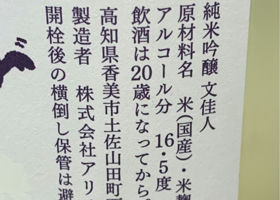 純米吟醸 文佳人
原材料名 米(国産)・米麹
アルコール分 16.5度
飲酒は20歳になってから
高知県香美市土佐山田町
製造者 株式会社アリ
開栓後の横倒し保管は避